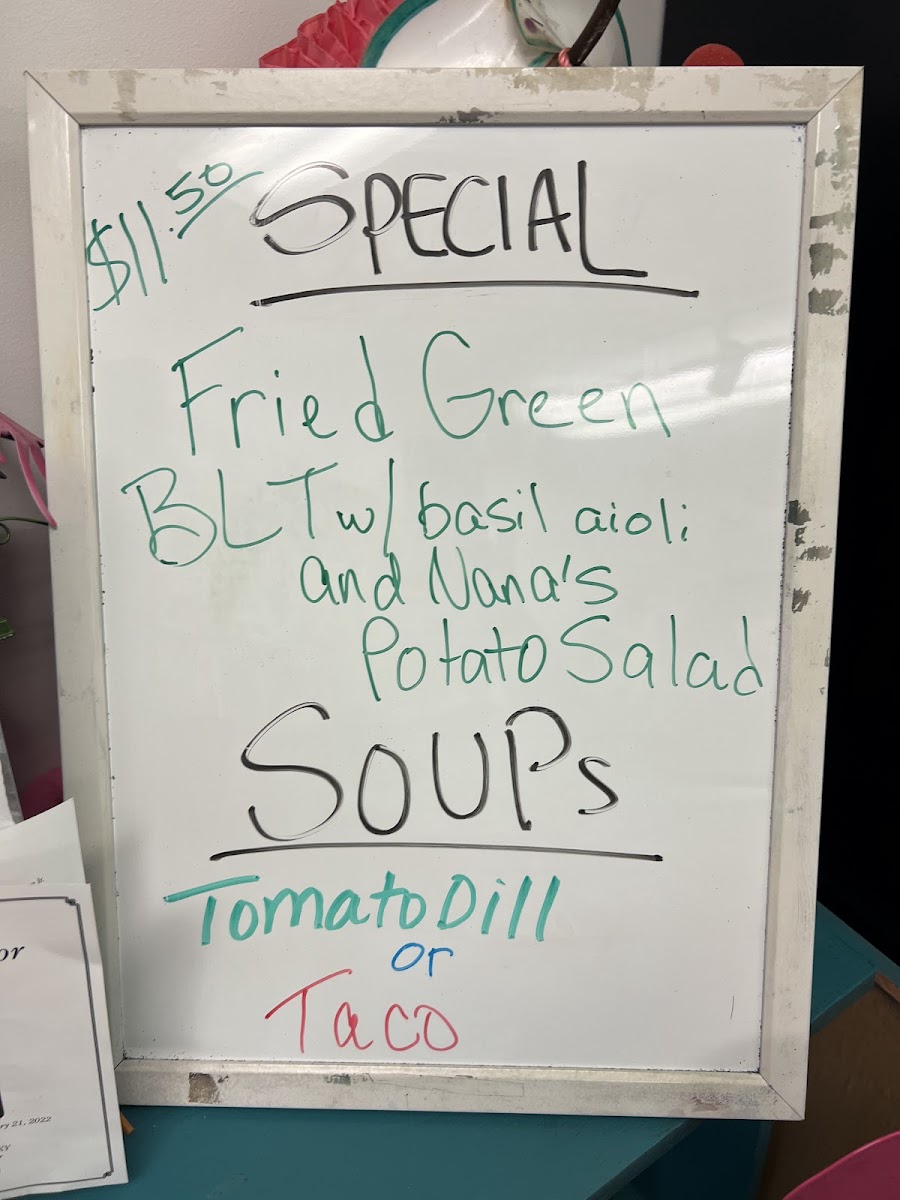 $11.50
SPECIAL
Fried Green
BLT w/ basil aioli
and Nana's
Potato Salad
SOUPs
Tomato Dill
or
Taco
or
ry 21, 2022